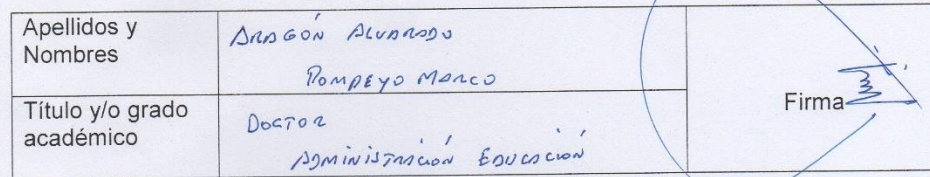 Apellidos y
Nombres
ARAGÓN ALVARADO
POMPEYO MARCO
Título y/o grado
académico
DOCTOR
ADMINISTRACIÓN EDUCACIÓN
Firma